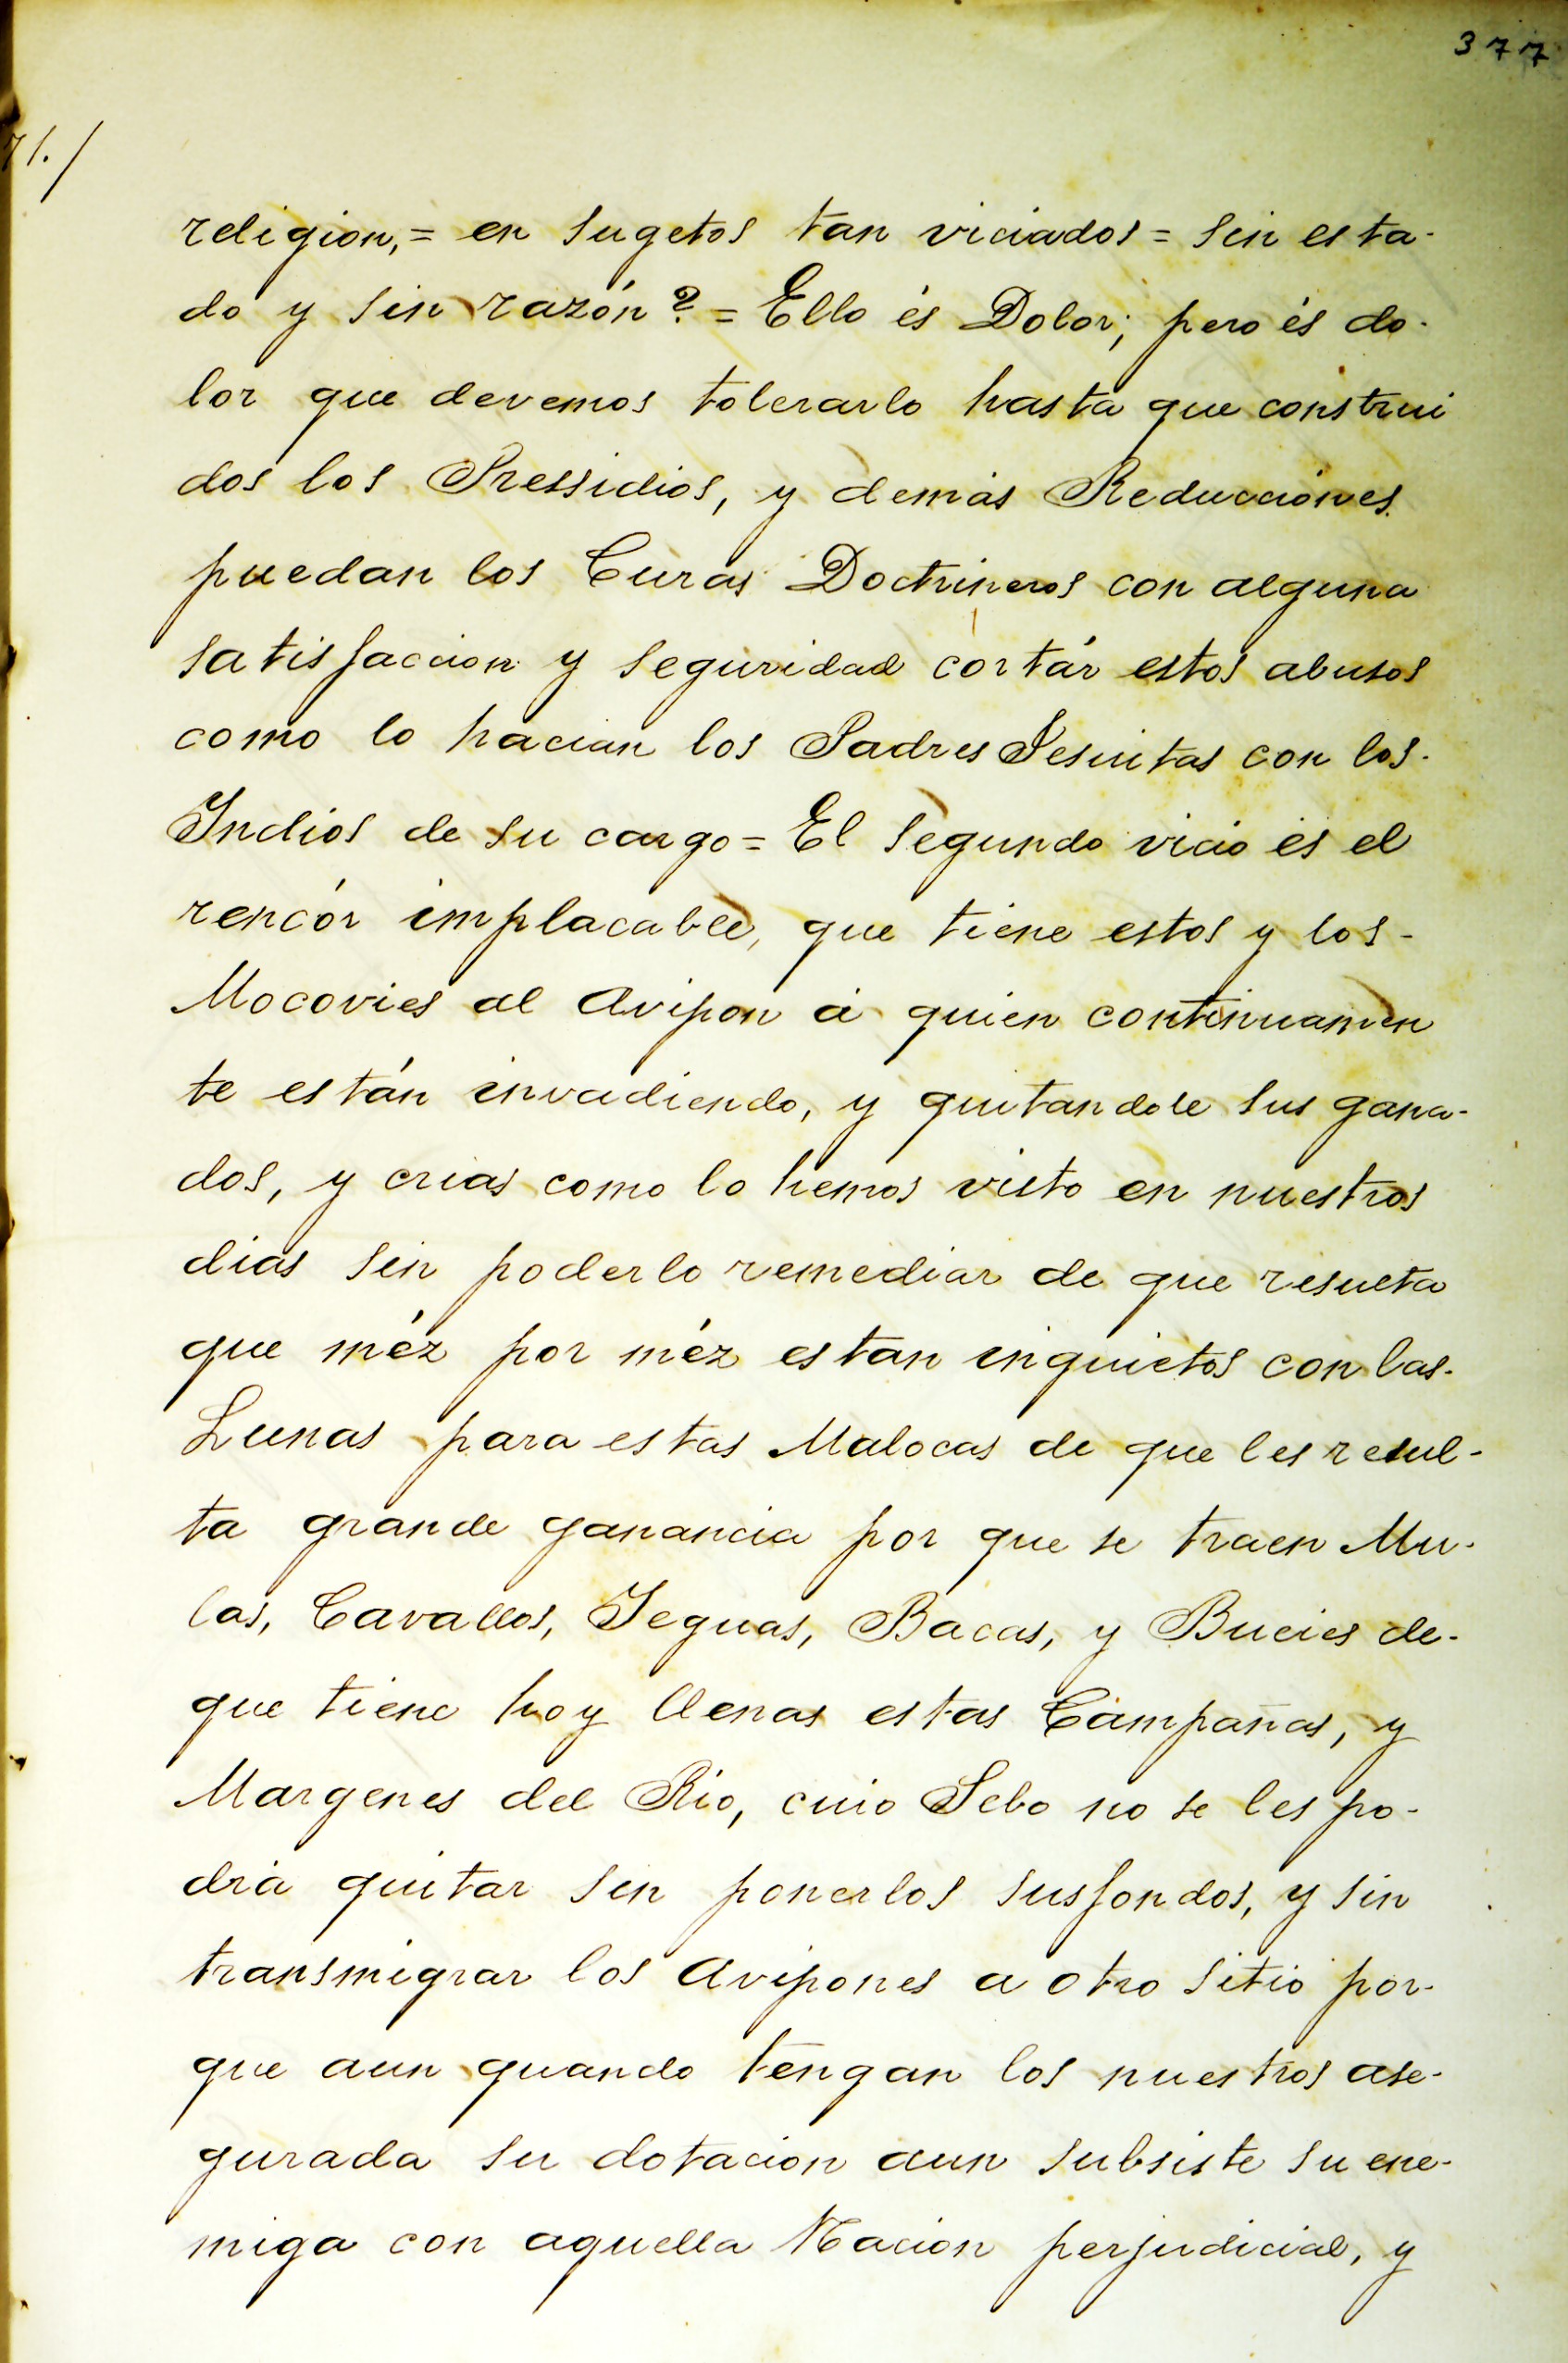 377
71./
religion,= en sugetos tan viciados = sin esta-
do y sin razón? = Ello és Dolor; pero és do-
lor que devemos tolerarlo hasta que construi
dos los Pressidios, y demás Reducciónes
puedan los Curas Doctrineros con alguna
satisfaccion y seguridad cortár estos abusos
como lo hacian los Padres Jesuitas con los-
Indios de su cargo = El segundo vicio és el
rencór implacable, que tiene estos y los-
Mocovies al Avipon á quien continuamen
te están invadiendo, y quitandole sus gana-
dos, y crias como lo hemos visto en nuestros
dias sin poderlo remediar de que resulta
que méz por méz estan inquietos con las-
Lunas para estas Malocas de que les resul-
ta grande ganancia por que se traen Mu-
las, Cavallos, Yeguas, Bacas, y Bueies de-
que tiene hoy llenas estas Campañas, y
Margenes del Rio, cuio Sebo no se les po-
drá quitar sin ponerlos sus fondos, y sin
transmigrar los Avipones a otro sitio por-
que aun quando tengan los nuestros ase-
gurada su dotacion aun subsiste su ene-
miga con aquella Nacion perjudicial, y